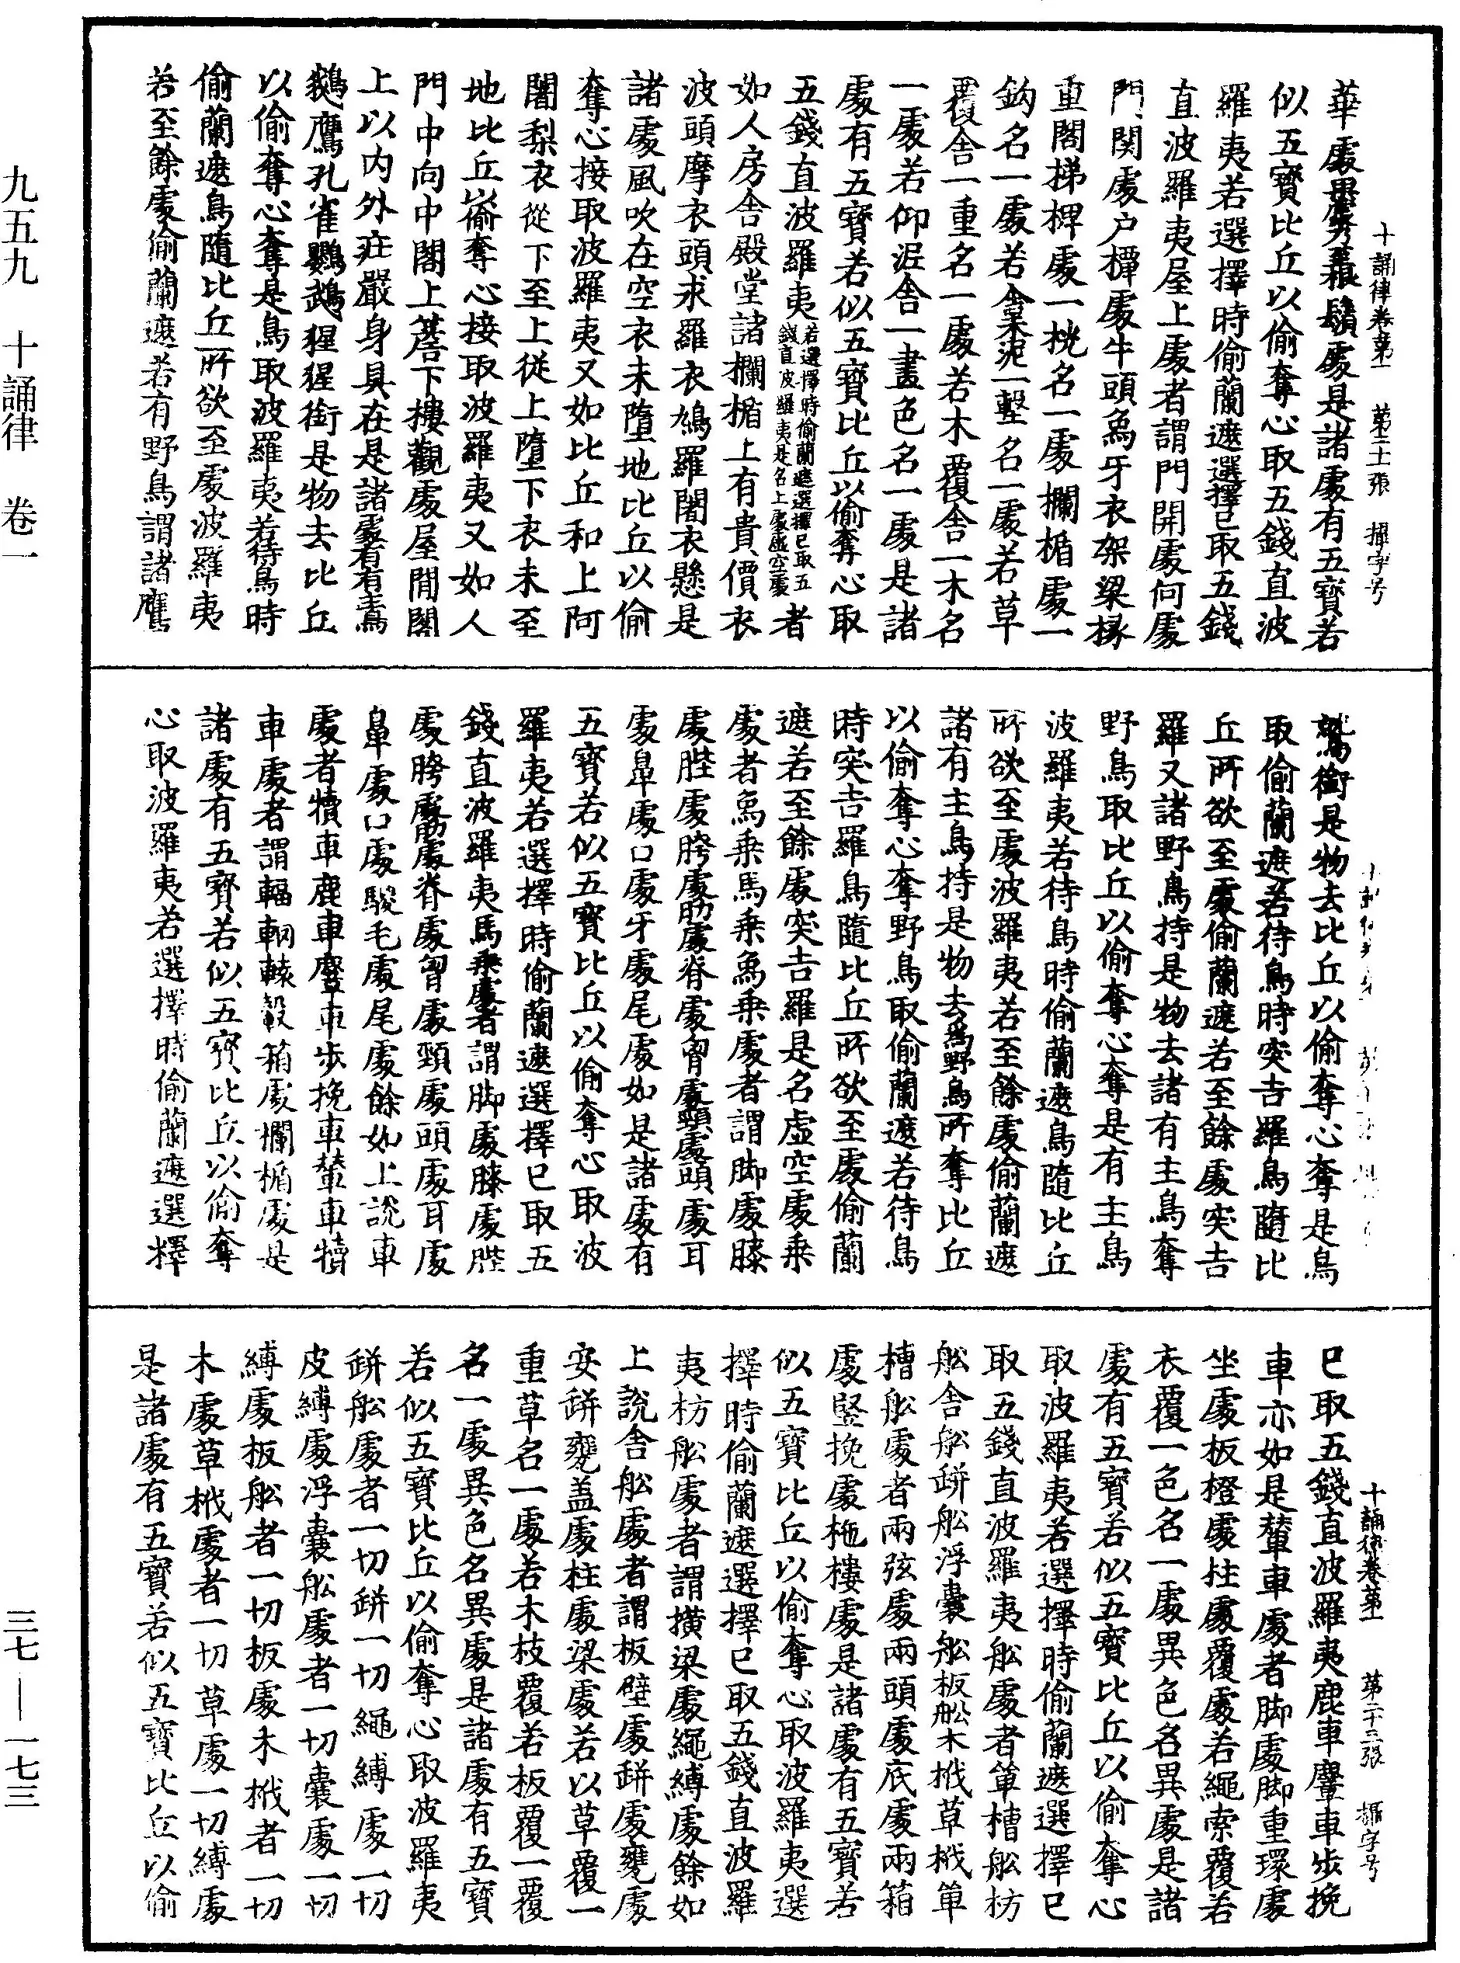 十誦律卷第一　第二十二張　攝字号
華處果處葉根鬚處是諸處有五寶若
似五寶比丘以偷奪心取五錢直波
羅夷若選擇時偷蘭遮選擇已取五錢
直波羅夷屋上處者謂門開處向處
門関處户樿處牛頭象牙衣架梁椽
重閣梯桯處一桄名一處欄楯處一
鈎名一處若𣫍泥一墼名一處若草
覆舍一重名一處若木覆舍一木名
一處若仰泥舍一畫色名一處是諸
處有五寶若似五寶比丘以偷奪心取
五錢直波羅夷若選擇時偷蘭遮選擇已取五錢直波羅夷是名上處虛空處者
如人房舍殿堂諸欄楯上有貴價衣
波頭摩衣頭求羅衣鳩羅闍衣懸是
諸處風吹在空衣未墮地比丘以偷
奪心接取波羅夷又如比丘和上阿
闍梨衣從下至上從上墮下衣未至
地比丘以偷奪心接取波羅夷又如人
門中向中閣上菴下樓觀處屋間閣
上以內外莊嚴身具在是諸處有有鴦
鵝鷹孔雀鸚鵡猩猩銜是物去比丘
以偷奪心奪是鳥取波羅夷若待鳥時
偷蘭遮鳥隨比丘所欲至處波羅夷
若至餘處偷蘭遮若有野鳥謂諸鷹
鷲銜是物去比丘以偷奪心奪是鳥
取偷蘭遮若待鳥時突吉羅鳥隨比
丘所欲至處偷蘭遮若至餘處突吉
羅又諸野鳥持是物去諸有主鳥奪
野鳥取比丘以偷奪心奪是有主鳥
波羅夷若待鳥時偷蘭遮鳥隨比丘
所欲至處波羅夷若至餘處偷蘭遮
諸有主鳥持是物去為野鳥所奪比丘
以偷奪心奪野鳥取偷蘭遮若待鳥
時突吉羅鳥隨比丘所欲至處偷蘭
遮若至餘處突吉羅是名虛空處乘
處者象乘馬乘象乘處者謂脚處膝
處䏶處胯處肋處脊處胷處頸處頭處耳
處鼻處口處牙處尾處如是諸處有
五寶若似五寶比丘以偷奪心取波
羅夷若選擇時偷蘭遮選擇已取五
錢直波羅夷馬乘處者謂脚處膝處䏶
處胯處肋處脊處胷處頸處頭處耳處
鼻處口處騣毛處尾處餘如上說車
處者犢車鹿車𨏥車步挽車輦車犢
車處者謂輻輞轅轂箱處欄楯處是
諸處有五寶若似五寶比丘以偷奪
心取波羅夷若選擇時偷蘭遮選擇
十誦律卷第一　第二十三張　攝字号
已取五錢直波羅夷鹿車𨏥車步挽
車亦如是輦車處者脚處脚重環處
坐處板橙處柱處覆處若繩索覆若
衣覆一色名一處異色名異處是諸
處有五寶若似五寶比丘以偷奪心
取波羅夷若選擇時偷蘭遮選擇已
取五錢直波羅夷舩處者箄槽舩枋
舩舍舩缾舩浮囊舩板舩木栰草栰箄
槽舩處者兩弦處兩頭處底處兩箱
處竪挽處柂樓處是諸處有五寶若
似五寶比丘以偷奪心取波羅夷選
擇時偷蘭遮選擇已取五錢直波羅
夷枋舩處者謂撗梁處繩縛處餘如
上說舍舩處者謂板壁處缾處甕處
安缾甕盖處柱處梁處若以草覆一
重草名一處若木枝覆若板覆一覆
名一處異色名異處是諸處有五寶
若似五寶比丘以偷奪心取波羅夷
缾舩處者一切缾一切繩縛處一切
皮縛處浮囊舩處者一切囊處一切
縛處板舩者一切板處木栰者一切
木處草栰處者一切草處一切縛處
是諸處有五寶若似五寶比丘以偷
九五九　十誦律　卷一
三七—一七三